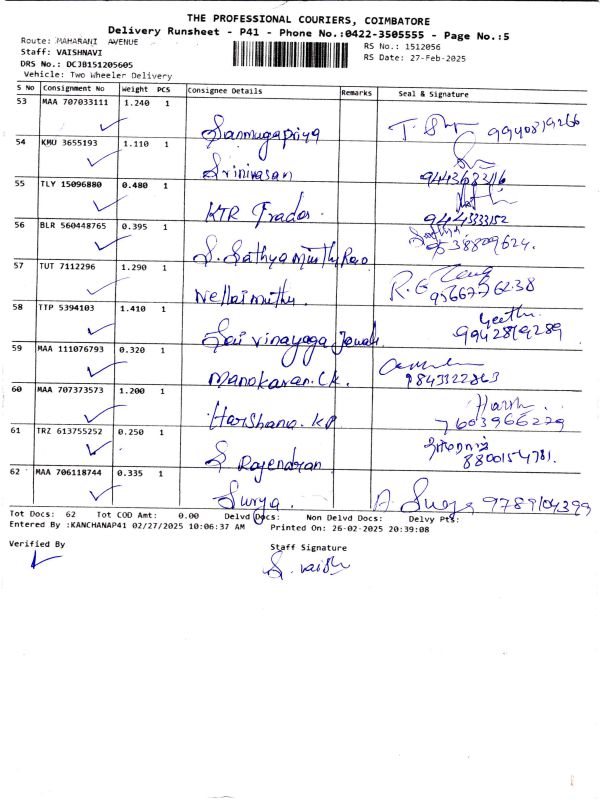 THE PROFESSIONAL COURIERS, COIMBATORE
Delivery Runsheet - P41 - Phone No.:0422-3505555 - Page No.:5
Route: MAHARANI AVENUE
RS No.: 1512056
Staff: VAISHNAVI
RS Date: 27-Feb-2025
DRS No.: DCJB151205605
Vehicle: Two Wheeler Delivery
S No Consignment No Weight PCS Consignee Details Remarks Seal & Signature
53 MAA 707033111 1.240 1
Sanmugapriya 9940819266
54 KMU 3655193 1.110 1
Srinivasan
55 TLY 15096880 0.480 1
KTR Trador. 9444333152
56 BLR 560448765 0.395 1
S. Sathyamurthy Rao 9538809624.
57 TUT 7112296 1.290 1
Nellaimuthu. R.G
58 TTP 5394103 1.410 1
Geetha.
Sai vinayaga Jowels 9942819289
59 MAA 111076793 0.320 1
Manokaran.C.K. 9843322863
60 MAA 707373573 1.200 1
Harish.
Harshana. KP 7603966229
61 TRZ 613755252 0.250 1
S Rajendran 8800154781.
62 MAA 706118744 0.335 1
Surya. A. Surya 9789104399
Tot Docs: 62 Tot COD Amt: 0.00 Delvd Docs: Non Delvd Docs: Delvy Pts:
Entered By :KANCHANAP41 02/27/2025 10:06:37 AM Printed On: 26-02-2025 20:39:08
Verified By
Staff Signature
S. Vaish